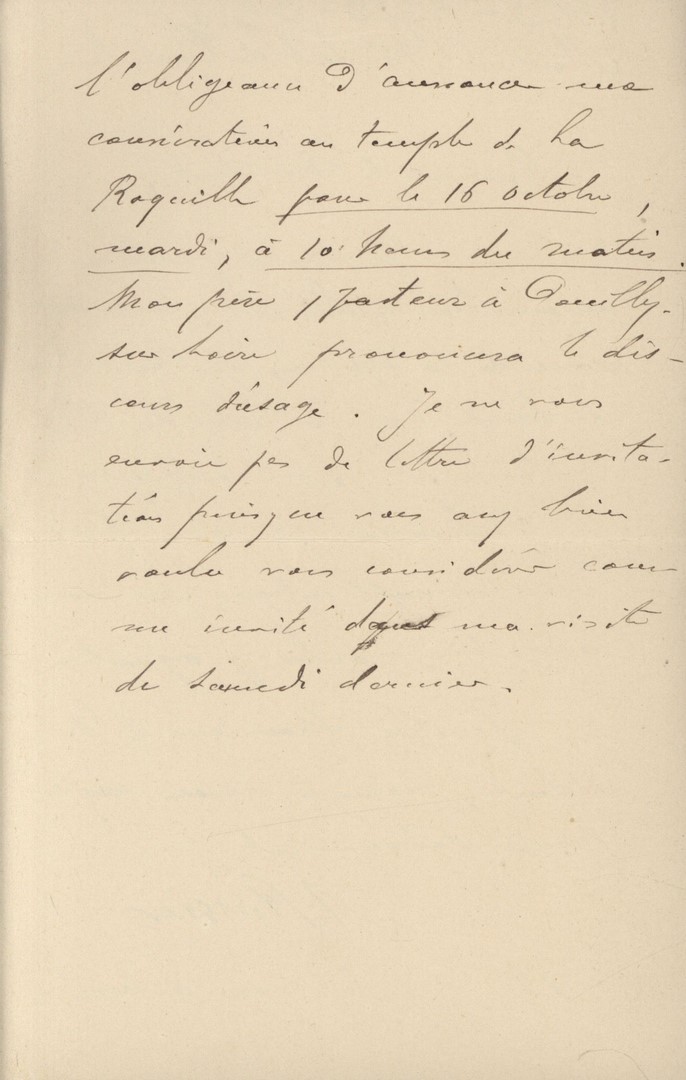 l'obligeance d'annoncer ma
consécration au temple de La
Roquille pour le 16 octobre,
mardi, à 10 heures du matin.
Mon père, pasteur à Pouilly-
sur Loire prononcera le dis-
cours d'usage. Je ne vous
envoie pas de lettre d'invita-
tion puisque vous avez bien
voulu vous considérer com-
me invité ma visite
de samedi dernier.